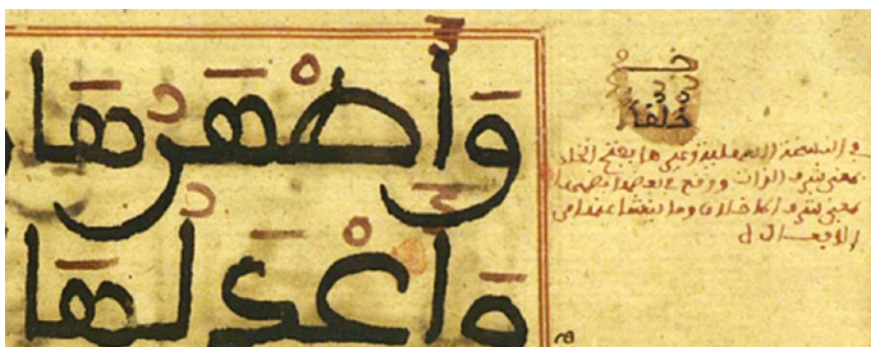 وَأَطْهَرُهَا
وَأَعْدَلُهَا
خلقا
في النسخة السهلية وغيرها بفتح الخاء
بمعنى شرف الذات ووقع في بعضها بضمها
بمعنى شرف الاخلاق وما ينشا عنها من
الافعال